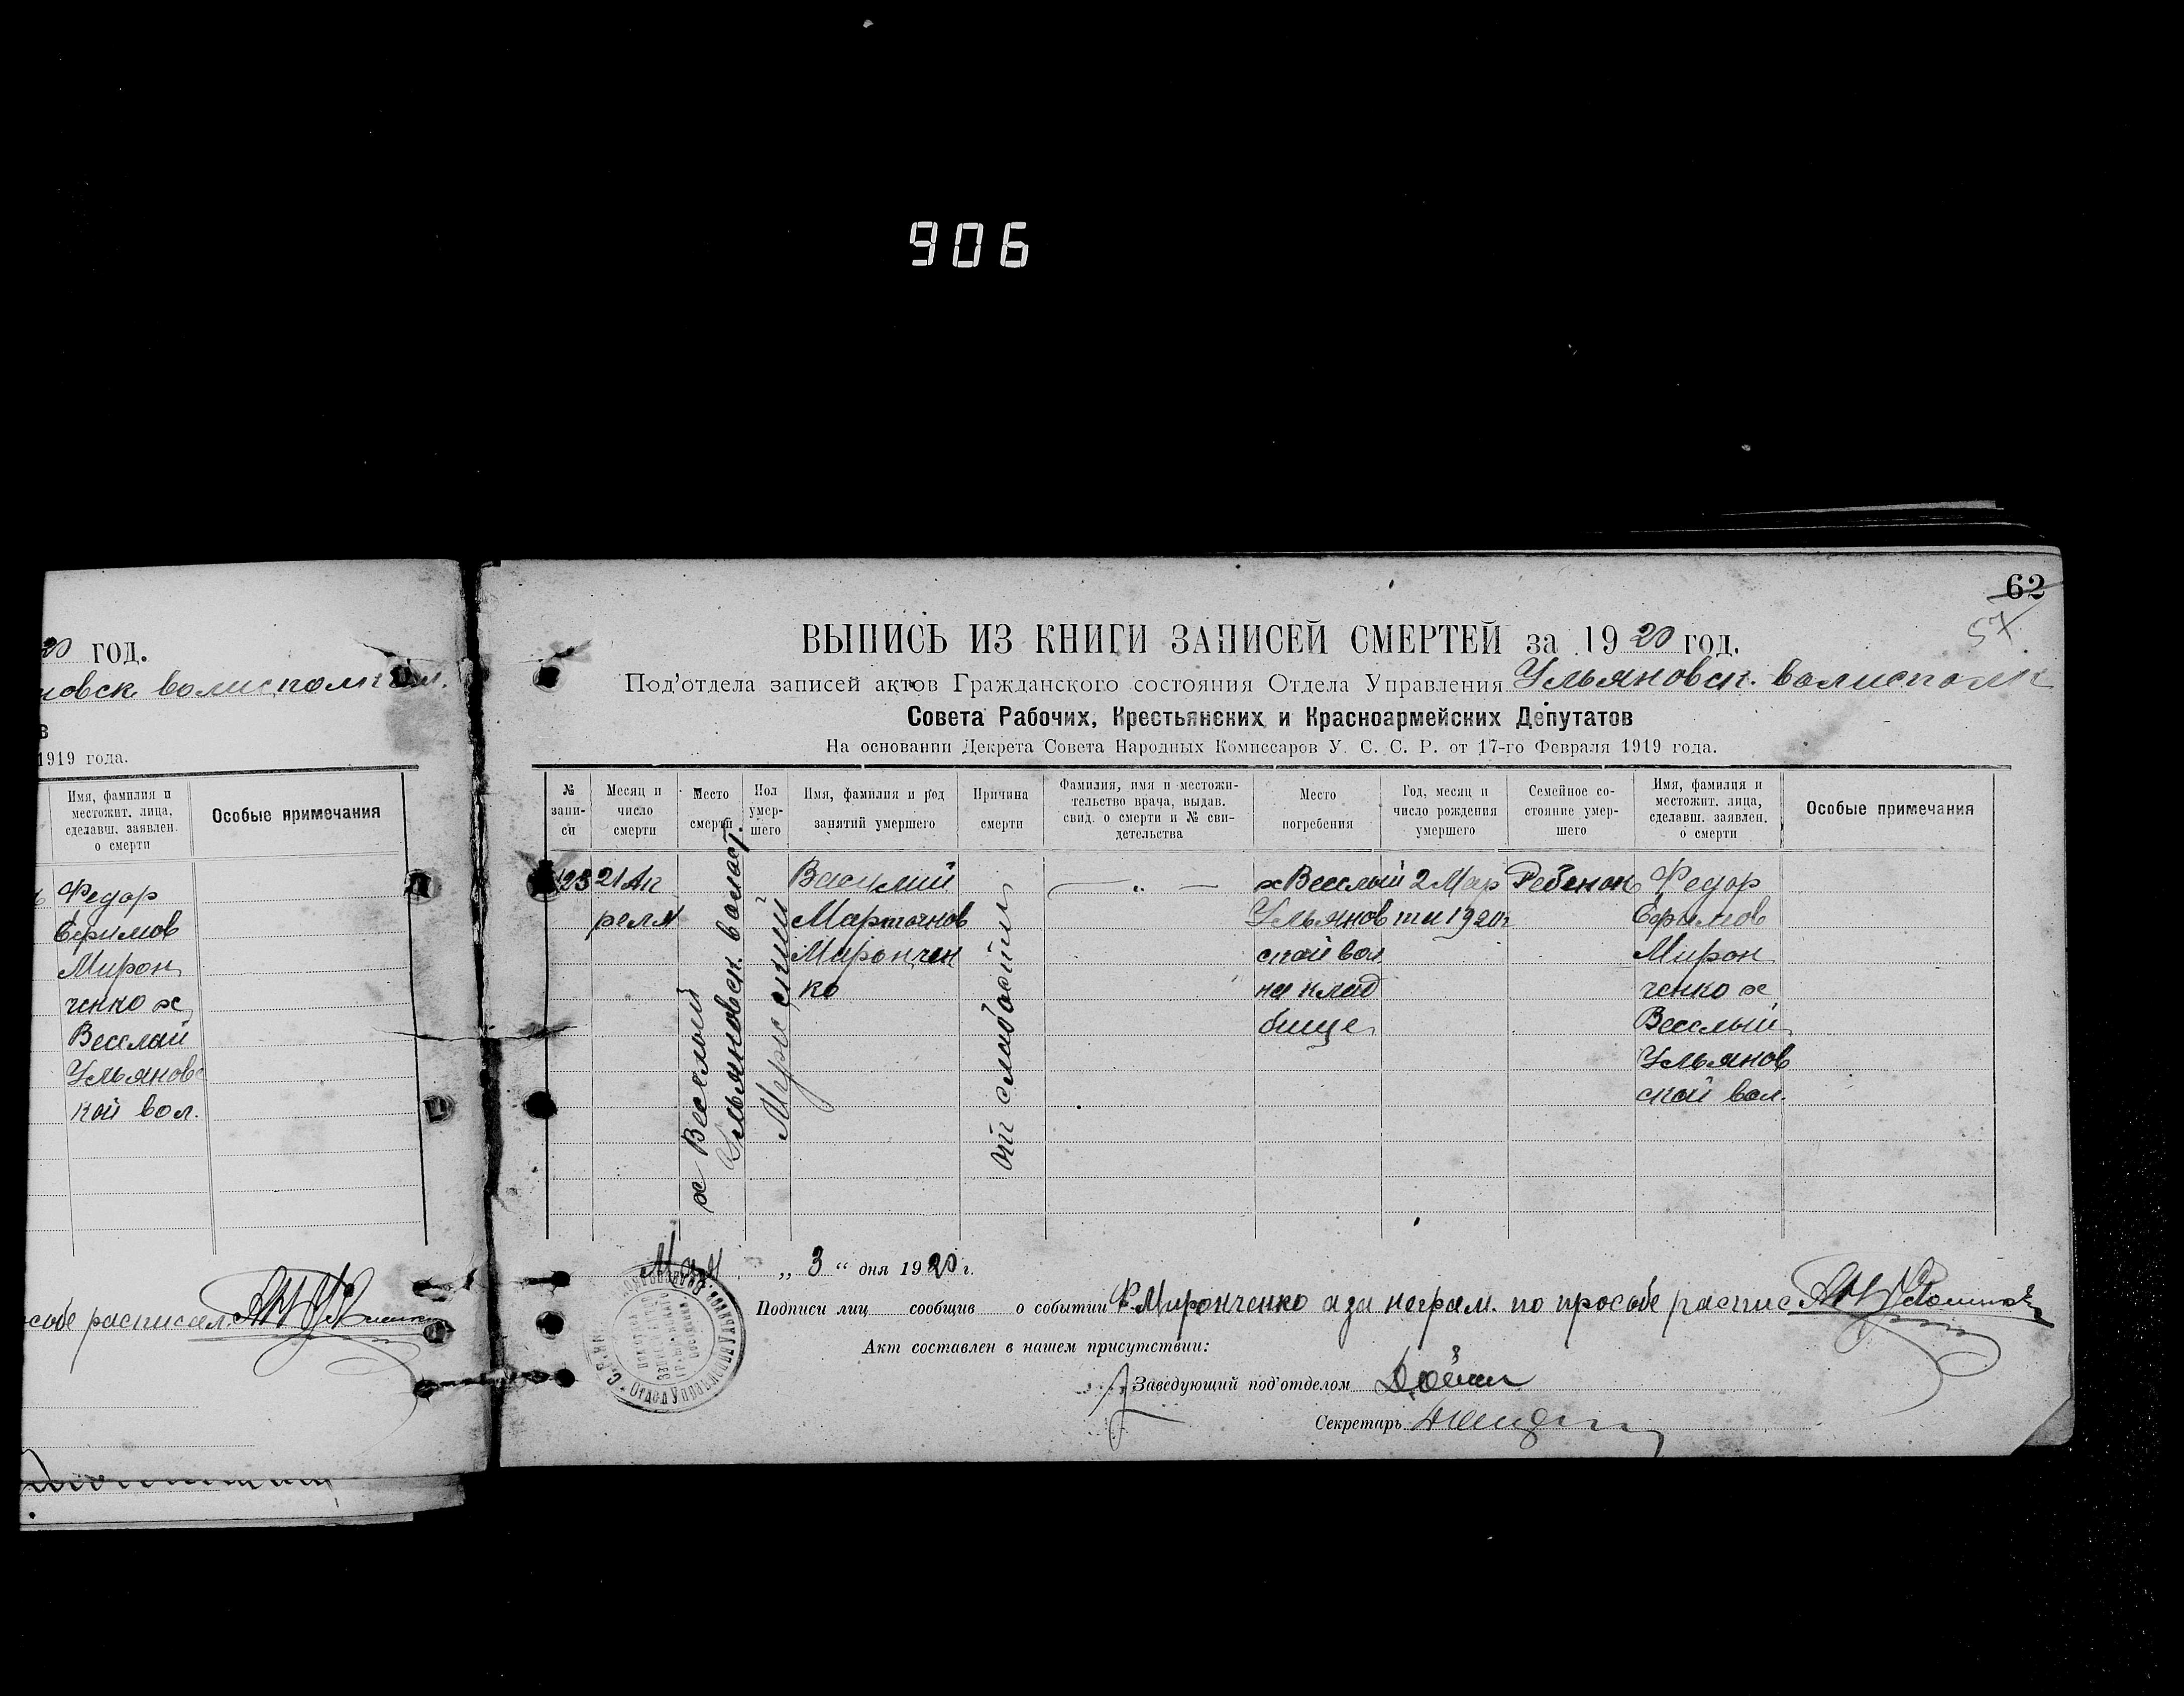 906
20 год.
новск. волисполком.
в
1919 года.
Имя, фамилия и
местожит. лица,
сделавш. заявлен.
о смерти
Особые примечания
Федор
Ефимов
Мирон
ченко х
Веселай
Ульяновс
кой вол.
собе расписал
62
57
ВЫПИСЬ ИЗ КНИГИ ЗАПИСЕЙ СМЕРТЕЙ за 1920 год.
Под'отдела записей актов Гражданского состояния Отдела Управления Ульяновск. волисполк
Совета Рабочих, Крестьянских и Красноармейских Депутатов
На основании Декрета Совета Народных Комиссаров У. С. С. Р. от 17-го Февраля 1919 года.
№
запи-
си
Месяц и
число
смерти
Место
смерти
Пол
умер-
шего
Имя, фамилия и род
занятий умершего
Причина
смерти
Фамилия, имя и местожи-
тельство врача, выдав.
свид. о смерти и № сви-
детельства
Место
погребения
Год, месяц и
число рождения
умершего
Семейное со-
стояние умер-
шего
Имя, фамилия и
местожит. лица,
сделавш. заявлен.
о смерти
Особые примечания
123
21 Ап
реля
х Веселый
Ульяновск. волост.
Мужской
Василий
Мартынов
Мирончен
ко
от слабости
— „ —
х Веселый
Ульянов
ской вол
на клад
бище
2 Мар
та 1920г
Ребенок
Федор
Ефимов
Мирон
ченко х
Веселый
Ульянов
ской вол.
Мая „ 3 “ дня 1920 г.
Подписи лиц сообщив о событии Ф. Миронченко а за неграм. по прособе распис
Акт составлен в нашем присутствии:
Заведующий под'отделом
Секретарь
Отдел Управления